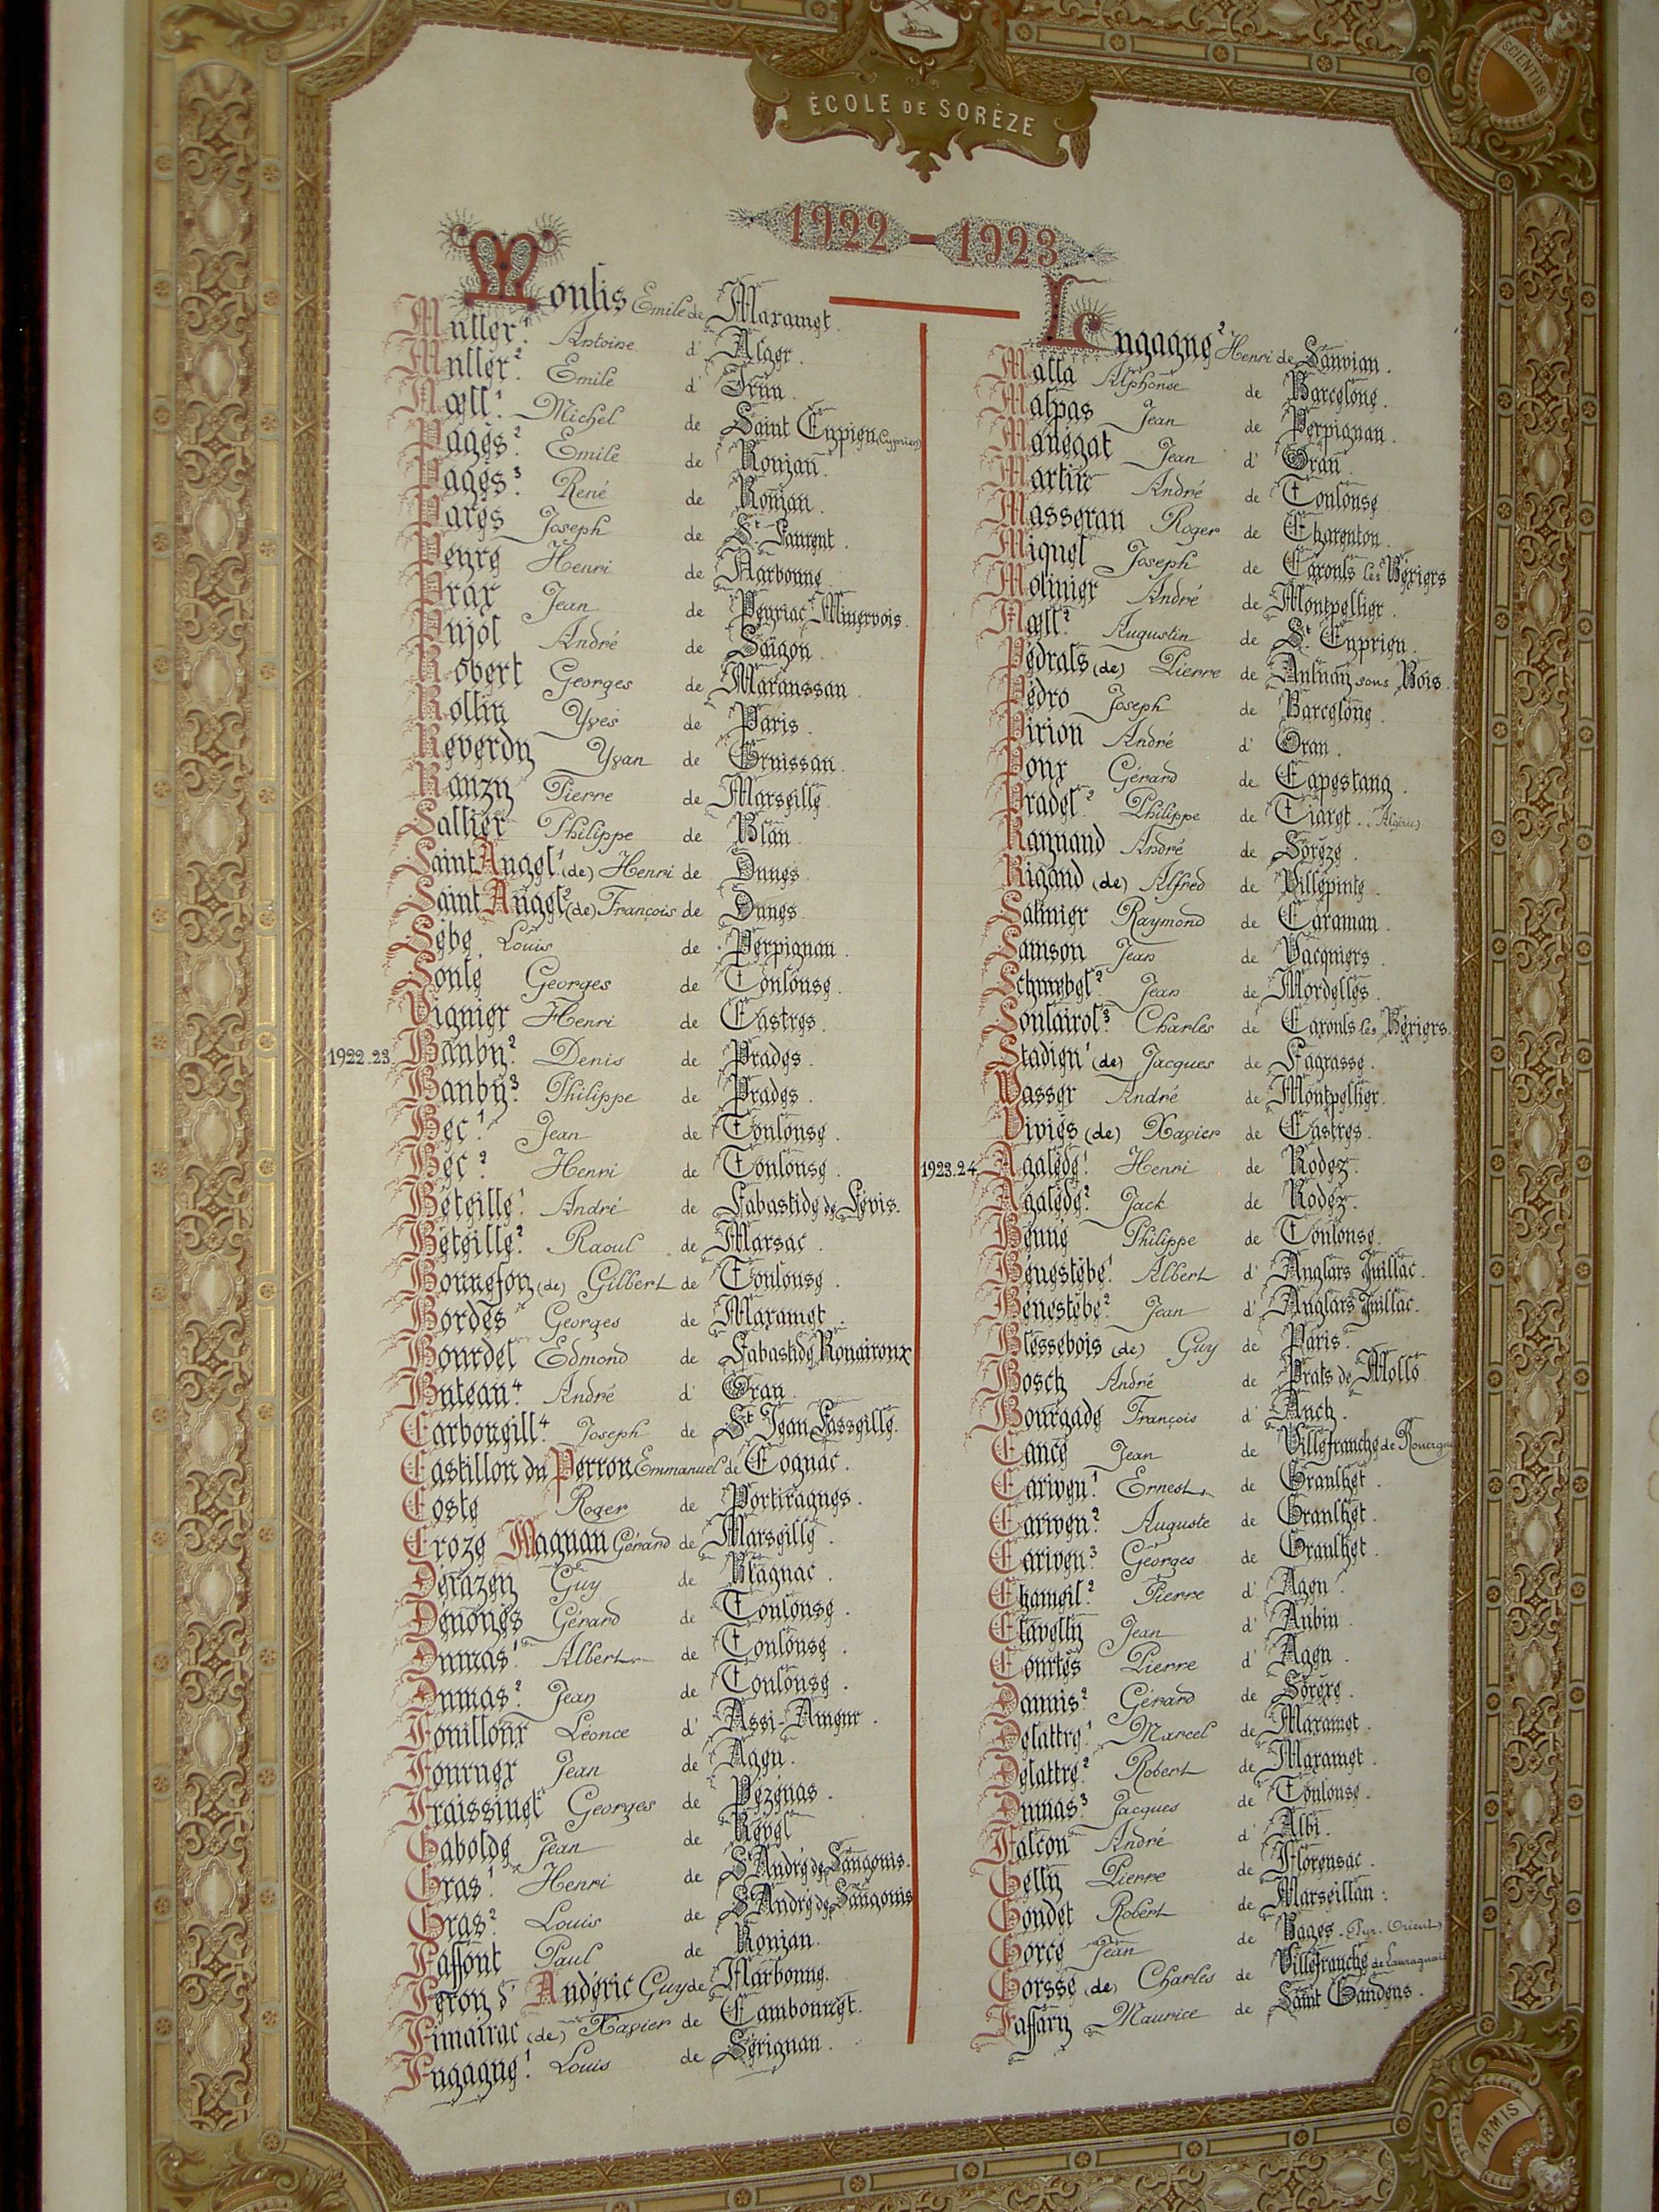 SCIENTIIS
ÉCOLE DE SORÈZE
1922 - 1923
Moulis Emile de Mazamet.
Muller¹. Antoine d' Alger.
Muller². Emile d' Irun.
Noell¹. Michel de Saint Cyprien (Cyprien)
Pagès². Emile de Roujan.
Pagès³. René de Roujan.
Parès Joseph de St Laurent.
Peyre Henri de Narbonne.
Prax Jean de Peyriac-Minervois.
Pujol André de Saïgon.
Robert Georges de Maraussan.
Rollin Yves de Paris.
Reverdy Yvan de Gruissan.
Rauzy Pierre de Marseille
Sallier Philippe de Blan.
Saint Angel¹ (de) Henri de Dunes.
Saint Angel² (de) François de Dunes.
Sèbe Louis de Perpignan.
Soulé Georges de Toulouse.
Vignier Henri de Castres.
1922.23. Bauby² Denis de Prades.
Bauby³ Philippe de Prades.
Bec¹. Jean de Toulouse.
Bec². Henri de Toulouse.
Béteille¹. André de Labastide de Lévis.
Béteille². Raoul de Marsac.
Bonnefon (de) Gilbert de Toulouse.
Bordes Georges de Mazamet.
Bourdel Edmond de Labastide Rouairoux
Buteau⁴ André d' Oran.
Carboneill⁴. Joseph de St Jean Lasseille.
Castillon du Perron Emmanuel de Cognac.
Coste Roger de Portiragnes.
Croze Magnan Gérard de Marseille.
Dérazey Guy de Blagnac.
Dénonès Gérard de Toulouse.
Dumas¹. Albert de Toulouse.
Dumas². Jean de Toulouse.
Fouilloux Léonce d' Assi-Ameur.
Fournex Jean de Agen.
Fraissinet Georges de Pézenas.
Gabolde Jean de Revel
Gras¹. Henri de St André de Sangonis.
Gras² Louis de St André de Sangonis
Laffont Paul de Roujan.
Leroy d' Audéric Guy de Narbonne.
Limairac (de) Xavier de Cambounet.
Lugagne¹. Louis de Sérignan.
Lugagne² Henri de Sauvian.
Malla Alphonse de Barcelone.
Malpas Jean de Perpignan.
Manégat Jean d' Oran.
Martin André de Toulouse
Masseran Roger de Charenton.
Miquel Joseph de Cazouls les Béziers
Molinier André de Montpellier.
Noell². Augustin de St Cyprien.
Pédrals (de) Pierre de Aulnay sous Bois.
Pédro Joseph de Barcelone.
Pirion André d' Oran.
Poux Gérard de Capestang.
Pradel² Philippe de Tiaret. (Algérie)
Raynaud André de Sorèze.
Rigaud (de) Alfred de Villepinte.
Salinier Raymond de Caraman.
Samson Jean de Vacquiers.
Schmebel² Jean de Mordelles.
Soulairol³ Charles de Cazouls les Béziers.
Stadieu¹ (de) Jacques de Lagrasse.
Vasser André de Montpellier.
Viviès (de) Xavier de Castres.
1923.24. Agalède¹. Henri de Rodez.
Agalède². Jack de Rodez.
Benne Philippe de Toulouse.
Bénestèbe¹. Albert d' Anglars Juillac.
Bénestèbe². Jean d' Anglars Juillac.
Blessebois (de) Guy de Paris.
Bosch André de Prats de Mollo
Bourgade François d' Auch.
Cance Jean de Villefranche de Rouergue
Cariven¹. Ernest de Graulhet.
Cariven². Auguste de Graulhet.
Cariven³ Georges de Graulhet.
Chameil². Pierre d' Agen.
Clavelly Jean d' Aubin.
Courtès Pierre d' Agen.
Daunis² Gérard de Sorèze.
Delattre¹. Marcel de Mazamet.
Delattre². Robert de Mazamet.
Dumas³ Jacques de Toulouse.
Falcon André d' Albi.
Gelly Pierre de Florensac.
Gondet Robert de Marseillan.
Gorce Jean de Bages. (Pyr. Orient.)
Gorsse (de) Charles de Villefranche de Lauraguais
Laffary Maurice de Saint Gaudens.
ARMIS